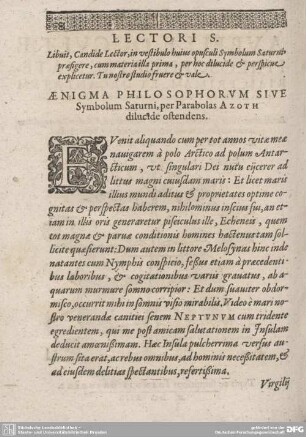 LECTORI S.
Libuit, Candide Lector, in vestibulo huius opusculi Symbolum Saturni
præfigere, cum materia illa prima, per hoc dilucide & perspicue
explicetur. Tu nostro studio fruere & vale.
ÆNIGMA PHILOSOPHORVM SIVE
Symbolum Saturni, per Parabolas AZOTH
dilucide ostendens.
EVenit aliquando cum per tot annos vitæ meæ
navigarem à polo Arctico ad polum Antar-
cticum, vt singulari Dei nutu eijcerer ad
littus magni cuiusdam maris: Et licet maris
illius mundi aditus & proprietates optime co-
gnitas & perspectas haberem, nihilominus inscius fui, an et-
iam in illis oris generaretur pisciculus ille, Echeneis, quem
tot magnæ & parvæ conditionis homines hactenus tam sol-
licite quæsierunt: Dum autem in littore Melosynas hinc inde
natantes cum Nymphis conspicio, fessus etiam à præcedenti-
bus laboribus, & cogitationibus variis gravatus, ab a-
quarum murmure somno corripior: Et dum suaviter obdor-
misco, occurrit mihi in somnis visio mirabilis, Video è mari no-
stro venerandæ canitiei senem NEPTUNVM cum tridente
egredientem, qui me post amicam salutationem in Insulam
deducit amœnissimam. Hæc Insula pulcherrima versus au-
strum sita erat, ac rebus omnibus, ad hominis necessitatem, &
ad eiusdem delitias spectantibus, refertissima.
Virgilij